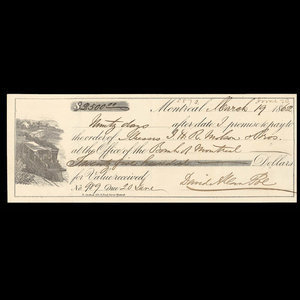 $2500.00 Montreal March 19 1862
Ninety days after date I promise to pay to
the order of Messrs J. H. R. Molson & Bros.
at the Office of the Bank of Montreal
Twenty five hundred Dollars
for Value received
No 979 Due 20 June David Allan Poe